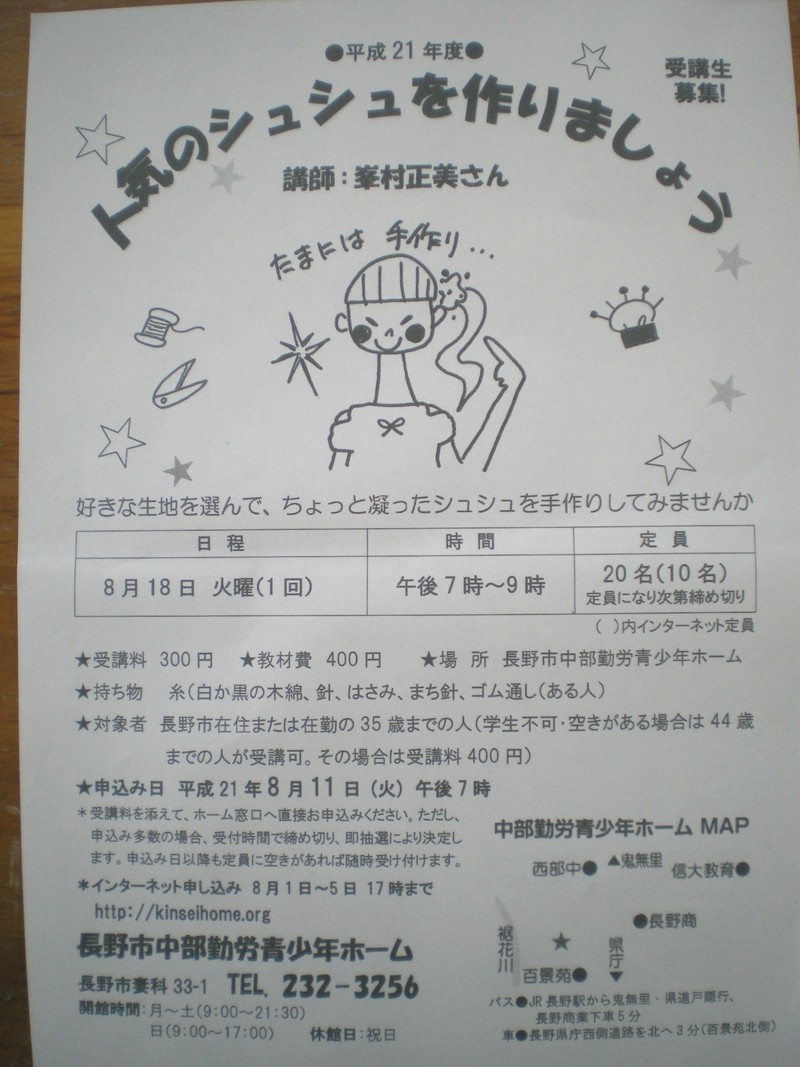 ●平成21年度●
受講生
募集!
人気のシュシュを作りましょう
講師：峯村正美さん
たまには 手作り...
好きな生地を選んで、ちょっと凝ったシュシュを手作りしてみませんか
日程 時間 定員
8月18日 火曜(1回) 午後7時～9時 20名(10名)
定員になり次第締め切り
( )内インターネット定員
★受講料 300円 ★教材費 400円 ★場 所 長野市中部勤労青少年ホーム
★持ち物 糸(白か黒の木綿、針、はさみ、まち針、ゴム通し(ある人)
★対象者 長野市在住または在勤の35歳までの人(学生不可・空きがある場合は44歳
までの人が受講可。その場合は受講料400円)
★申込み日 平成21年8月11日(火) 午後7時
＊受講料を添えて、ホーム窓口へ直接お申込みください。ただし、
申込み多数の場合、受付時間で締め切り、即抽選により決定し
ます。申込み日以降も定員に空きがあれば随時受け付けます。
＊インターネット申し込み 8月1日～5日 17時まで
http://kinseihome.org
長野市中部勤労青少年ホーム
長野市妻科33-1 TEL. 232-3256
開館時間：月～土(9:00～21:30)
日(9:00～17:00) 休館日：祝日
中部勤労青少年ホーム MAP
西部中● ▲鬼無里 信大教育●
●長野商
裾花川 ★ 県庁▼
百景苑●
バス●JR長野駅から鬼無里・県道戸隠行、
長野商業下車5分
車●長野県庁西側道路を北へ3分(百景苑北側)